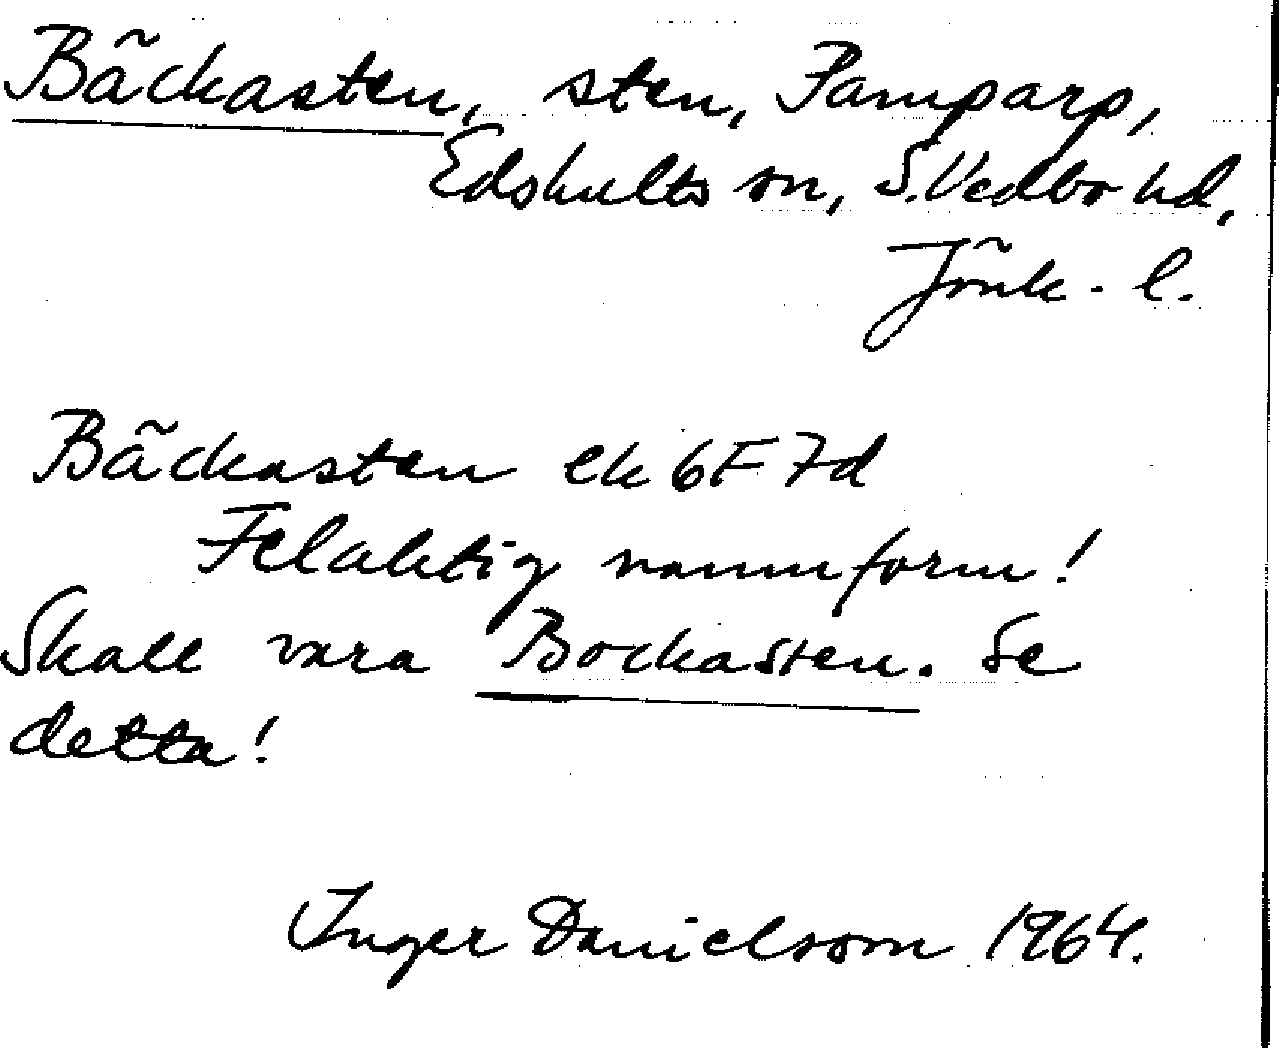 Bäckasten, sten, Pamparp,
Edshults sn, S. Vedbo hd,
Jönk. l.
Bäckasten ek 6F 7d
Felaktig namnform!
Skall vara Bockasten. Se
detta!
Inger Danielsson 1964.